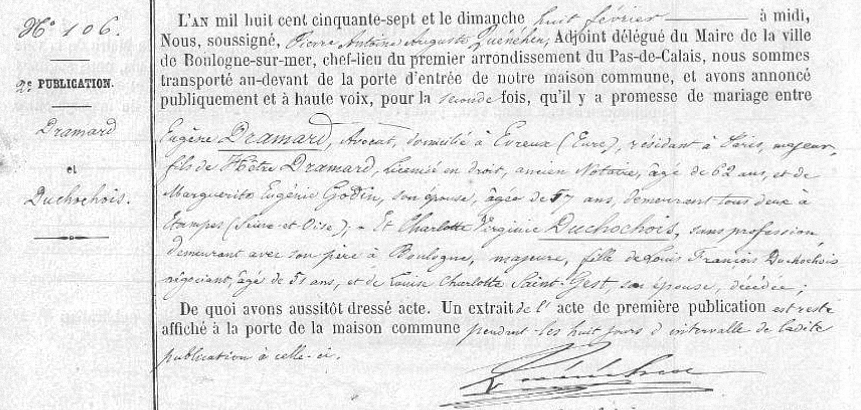 No 106.
2e PUBLICATION.
Dramard
et
Duchochois.
L'AN mil huit cent cinquante-sept et le dimanche huit février à midi,
Nous, soussigné, Pierre Antoine Auguste Quénéhen, Adjoint délégué du Maire de la ville
de Boulogne-sur-mer, chef-lieu du premier arrondissement du Pas-de-Calais, nous sommes
transporté au-devant de la porte d'entrée de notre maison commune, et avons annoncé
publiquement et à haute voix, pour la seconde fois, qu'il y a promesse de mariage entre
Eugène Dramard, Avocat, domicilié à Evreux (Eure), résidant à Paris, majeur,
fils de Dramard, Licencié en droit, ancien Notaire, âgé de 62 ans, et de
Marguerite Eugénie Godin, son épouse, âgée de 57 ans, demeurant tous deux à
Etampes (Seine et Oise), - Et Charlotte Virginie Duchochois, sans profession,
demeurant avec son père à Boulogne, majeure, fille de Louis François Duchochois
négociant, âgé de 51 ans, et de Louise Charlotte Saint-Gest, son épouse, décédée;
De quoi avons aussitôt dressé acte. Un extrait de l' acte de première publication est resté
affiché à la porte de la maison commune pendant les huit jours d'intervalle de ladite
publication à celle-ci.
Quénéhen